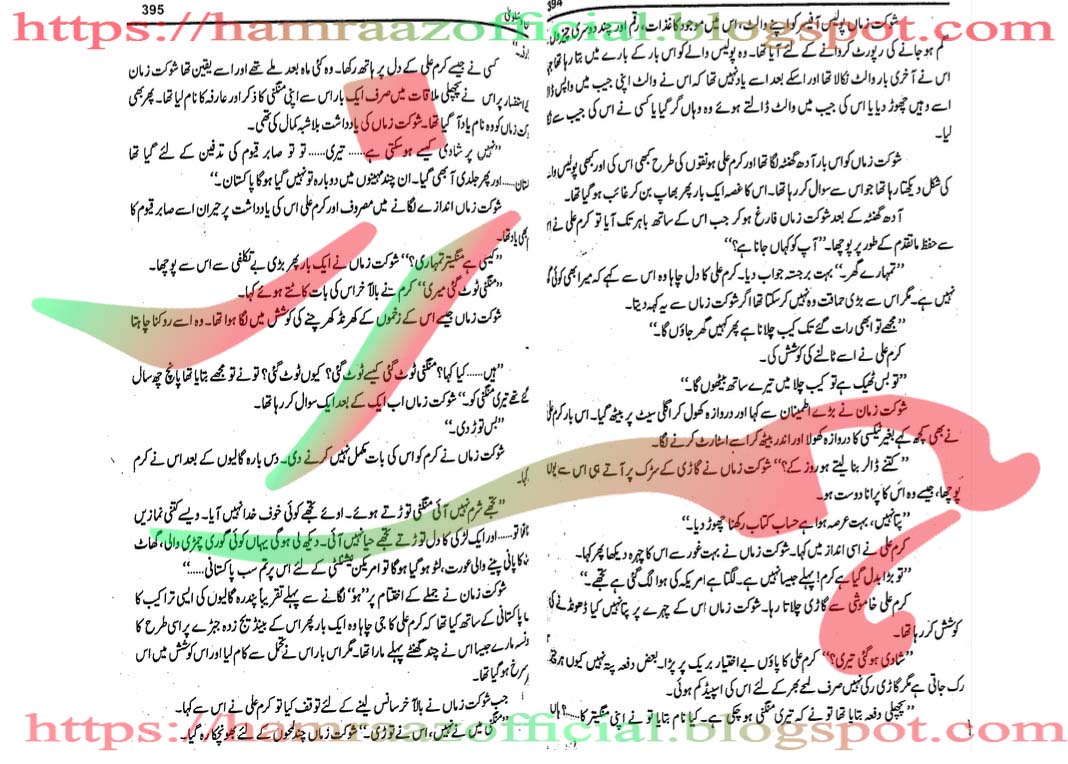 https://hamraazofficial.blogspot.com
394
شوکت زماں پولیس آفیسر کو اپنے والٹ، اس میں موجود کاغذات، رقم اور چند دوسری چیزوں
گم ہو جانے کی رپورٹ کروانے کے لئے آیا تھا۔ وہ پولیس والے کو اس بار کے بارے میں بتا رہا تھا
اس نے آخری بار والٹ نکالا تھا اور اسکے بعد اسے یاد نہیں تھا کہ اس نے والٹ اپنی جیب میں واپس ڈالا
اسے وہیں چھوڑ دیا یا اس کی جیب میں والٹ ڈالتے ہوئے وہ وہاں گر گیا یا کسی نے اس کی جیب سے
لیا۔
شوکت زماں کو اس بار آدھ گھنٹہ لگا تھا اور کرم علی ہونقوں کی طرح کبھی اس کی اور کبھی پولیس
کی شکل دیکھتا رہا تھا جو اس سے سوال کر رہا تھا۔ اس کا غصہ ایک بار پھر بھاپ بن کر غائب ہو گیا تھا۔
آدھ گھنٹہ کے بعد شوکت زماں فارغ ہو کر جب اس کے ساتھ باہر تک آیا تو کرم علی نے
سے حفظ ماتقدم کے طور پر پوچھا۔ ”آپ کو کہاں جانا ہے؟“
”تمہارے گھر۔“ بہت برجستہ جواب دیا۔ کرم علی کا دل چاہا وہ اس سے کہے کہ میرا بھی کوئی
نہیں ہے۔ مگر اس سے بڑی حماقت وہ نہیں کر سکتا تھا اگر شوکت زماں سے یہ کہہ دیتا۔
”مجھے تو ابھی رات گئے تک کیب چلانا ہے پھر کہیں گھر جاؤں گا۔“
کرم علی نے اسے ٹالنے کی کوشش کی۔
”تو بس ٹھیک ہے تو کیب چلا میں تیرے ساتھ بیٹھوں گا۔“
شوکت زماں نے بڑے اطمینان سے کہا اور دروازہ کھول کر اگلی سیٹ پر بیٹھ گیا۔ اس بار کرم
نے بھی کچھ کہے بغیر ٹیکسی کا دروازہ کھولا اور اندر بیٹھ کر اسے اسٹارٹ کرنے لگا۔
”کتنے ڈالر بنا لیتے ہو روز کے؟“ شوکت زماں نے گاڑی کے سڑک پر آتے ہی اس سے یوں
پوچھا، جیسے وہ اس کا پرانا دوست ہو۔
”پتا نہیں، بہت عرصہ ہوا ہے حساب کتاب رکھنا چھوڑ دیا۔“
کرم علی نے اسی انداز میں کہا۔ شوکت زماں نے بہت غور سے اس کا چہرہ دیکھا پھر کہا۔
”تو بڑا بدل گیا ہے کرم! پہلے جیسا نہیں ہے۔ لگتا ہے امریکہ کی ہوا لگ گئی ہے تجھے۔“
کرم علی خاموشی سے گاڑی چلاتا رہا۔ شوکت زماں اس کے چہرے پر پتا نہیں کیا ڈھونڈنے کی
کوشش کر رہا تھا۔
”شادی ہو گئی تیری؟“ کرم علی کا پاؤں بے اختیار بریک پر پڑا۔ بعض دفعہ پتہ نہیں کیوں ہر
رک جاتی ہے مگر گاڑی رکی نہیں صرف لمحے بھر کے لئے اس کی اسپیڈ کم ہوئی۔
”پچھلی دفعہ بتایا تھا تو نے کہ تیری منگنی ہو چکی ہے۔ کیا نام بتایا تو نے اپنی منگیتر کا......؟ ہاں
395
کسی نے جیسے کرم علی کے دل پر ہاتھ رکھا۔ وہ کئی ماہ بعد ملے تھے اور اسے یقین تھا شوکت زمان
اس نے پچھلی ملاقات میں صرف ایک بار اس سے اپنی منگنی کا ذکر اور عارفہ کا نام لیا تھا۔ پھر بھی
زماں کو وہ نام یاد آ گیا تھا۔ شوکت زماں کی یادداشت بلاشبہ کمال کی تھی۔
”نہیں پر شادی کیسے ہو سکتی ہے...... تیری...... تو تو صابر قیوم کی تدفین کے لئے گیا تھا
...... اور پھر جلدی آ بھی گیا۔ ان چند مہینوں میں دوبارہ تو نہیں گیا ہو گا پاکستان۔“
شوکت زماں اندازے لگانے میں مصروف اور کرم علی اس کی یادداشت پر حیران اسے صابر قیوم کا
بھی یاد تھا۔
”کیسی ہے منگیتر تمہاری؟“ شوکت زماں نے ایک بار پھر بڑی بے تکلفی سے اس سے پوچھا۔
”منگنی ٹوٹ گئی میری“ کرم نے بالآخر اس کی بات کاٹتے ہوئے کہا۔
شوکت زماں جیسے اس کے زخموں کے کھرنڈ کھرچنے کی کوشش میں لگا ہوا تھا۔ وہ اسے روکنا چاہتا
”ہیں...... کیا کہا؟ منگنی ٹوٹ گئی کیسے ٹوٹ گئی؟ کیوں ٹوٹ گئی؟ تو نے تو مجھے بتایا تھا پانچ چھ سال
گئے تھے تیری منگنی کو۔“ شوکت زماں اب ایک کے بعد ایک سوال کر رہا تھا۔
”بس توڑ دی۔“
شوکت زماں نے کرم کو اس کی بات مکمل نہیں کرنے دی۔ دس بارہ گالیوں کے بعد اس نے کرم
کہا۔
”تجھے شرم نہیں آئی منگنی توڑتے ہوئے۔ اوئے تجھے کوئی خوف خدا نہیں آیا۔ ویسے کتنی نمازیں
...... اور ایک لڑکی کا دل توڑتے تجھے حیا نہیں آئی۔ دیکھ لی ہو گی یہاں کوئی گوری چمڑی والی، گھاٹ
کا پانی پینے والی عورت، لٹو ہو گیا ہو گا تو امریکن نیشنلٹی کے لئے اس پر تم سب پاکستانی......“
شوکت زماں نے جملے کے اختتام پر ”ہو“ لگانے سے پہلے تقریباً پندرہ گالیوں کی ایسی تراکیب کا
پاکستانی کے ساتھ کیا تھا کہ کرم علی کا جی چاہا وہ ایک بار پھر اس کے بینڈیج زدہ جبڑے پر اسی طرح کا
مارے جیسا اس نے چند گھنٹے پہلے مارا تھا۔ مگر اس بار اس نے تحمل سے کام لیا اور اس کوشش میں اس
سرخ ہو گیا تھا۔
جب شوکت زماں نے بالآخر سانس لینے کے لئے توقف کیا تو کرم علی نے اس سے کہا۔
”منگنی میں نے نہیں، اس نے توڑی۔“ شوکت زماں چند لمحوں کے لئے بھونچکا رہ گیا۔
https://hamraazofficial.blogspot.com